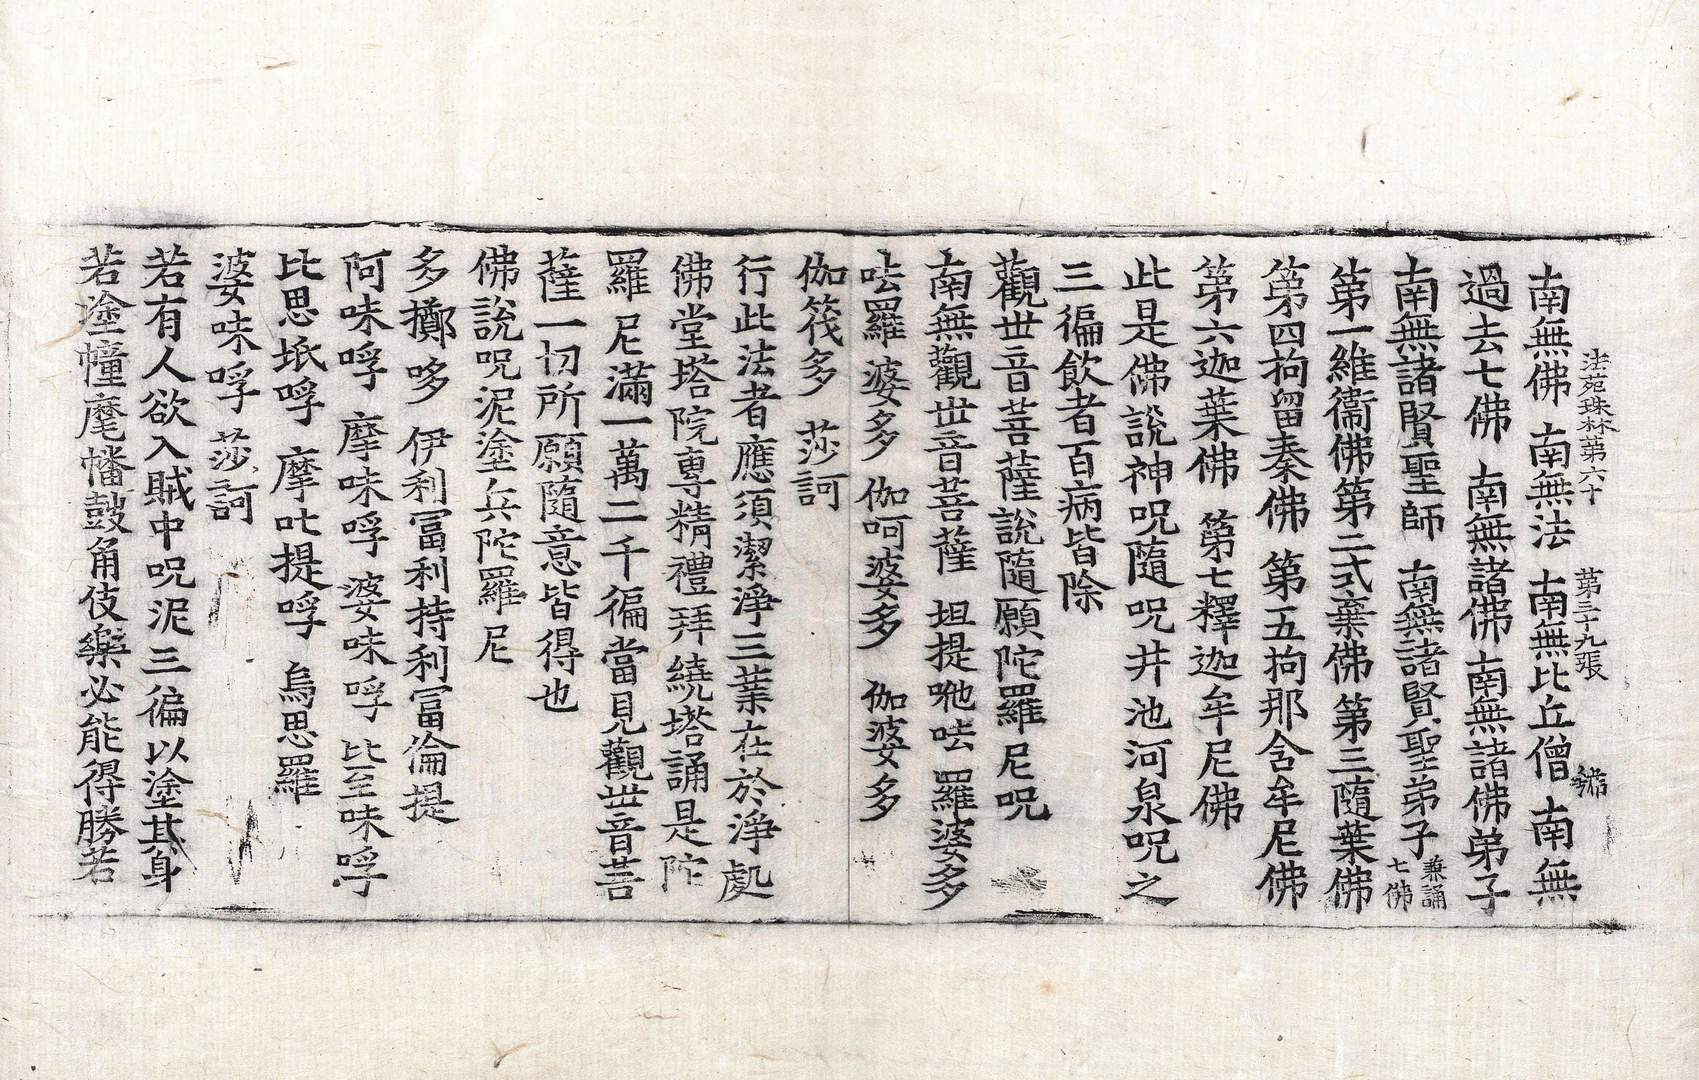 法苑珠林第六十　第三十九張
南無佛　南無法　南無比丘僧　南無
過去七佛　南無諸佛　南無諸佛弟子
南無諸賢聖師　南無諸賢聖弟子兼誦七佛
第一維衞佛第二式棄佛第三隨葉佛
第四拘留秦佛　第五拘那含牟尼佛
第六迦葉佛　第七釋迦牟尼佛
此是佛說神呪隨呪井池河泉呪之
三徧飮者百病皆除
觀世音菩薩說隨願陀羅尼呪
南無觀世音菩薩　坦提咃呿羅婆多
呿羅婆多　伽呵婆多　伽婆多
伽筏多　莎訶
行此法者應須潔淨三業在於淨處
佛堂塔院專精禮拜繞塔誦是陀
羅尼滿一萬二千徧當見觀世音菩
薩一切所願隨意皆得也
佛說呪泥塗兵陀羅尼
多擲哆　伊利富利持利富倫提
阿味呼　摩味呼　婆味呼　比至味呼
比思坻呼　摩吐提呼　烏思羅
婆味呼　莎訶
若有人欲入賊中呪泥三徧以塗其身
若塗幢麾幡鼓角伎樂必能得勝若